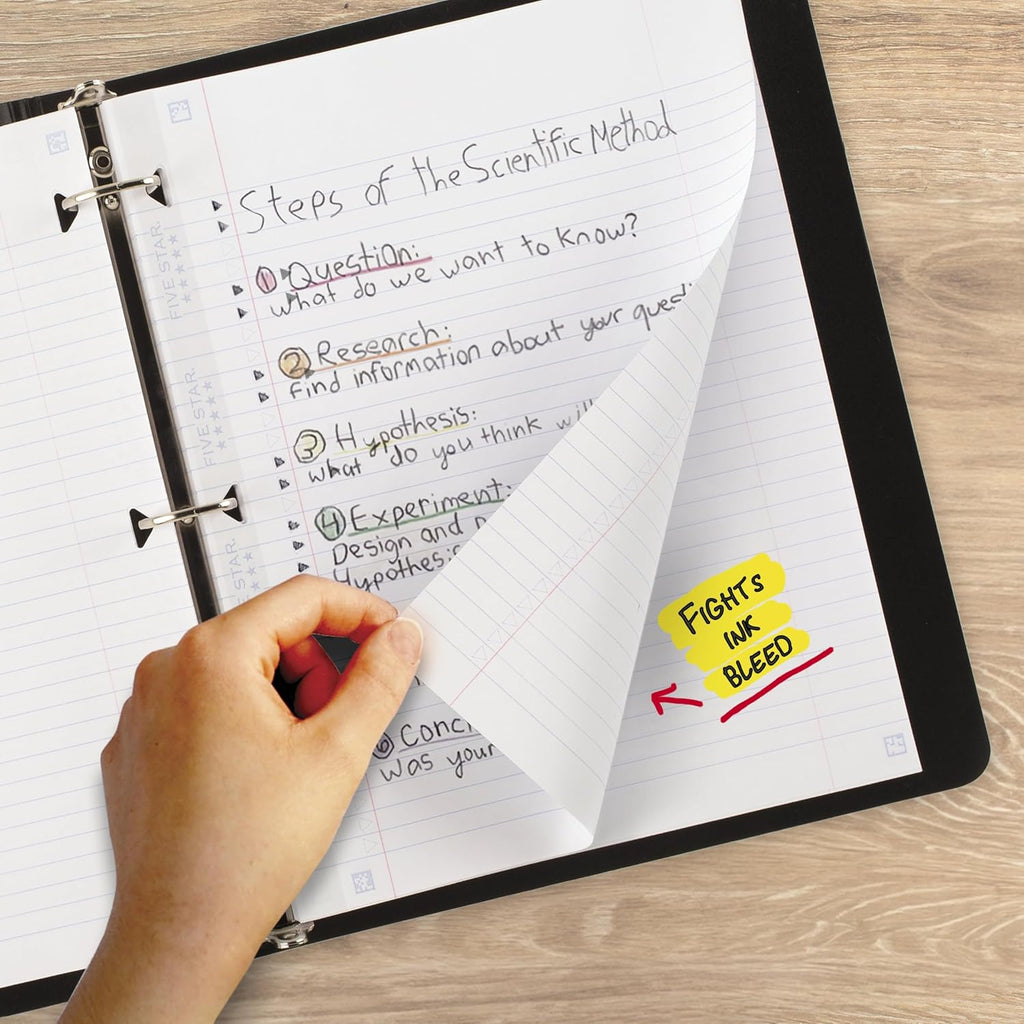 Steps of the Scientific Method
1 Question:
what do we want to know?
2 Research:
find information about your
3 Hypothesis:
what do you think
4 Experiment:
Design and
Hypothesis
6
was your
FIGHTS
INK
BLEED
FIVE STAR
FIVE STAR
STAR